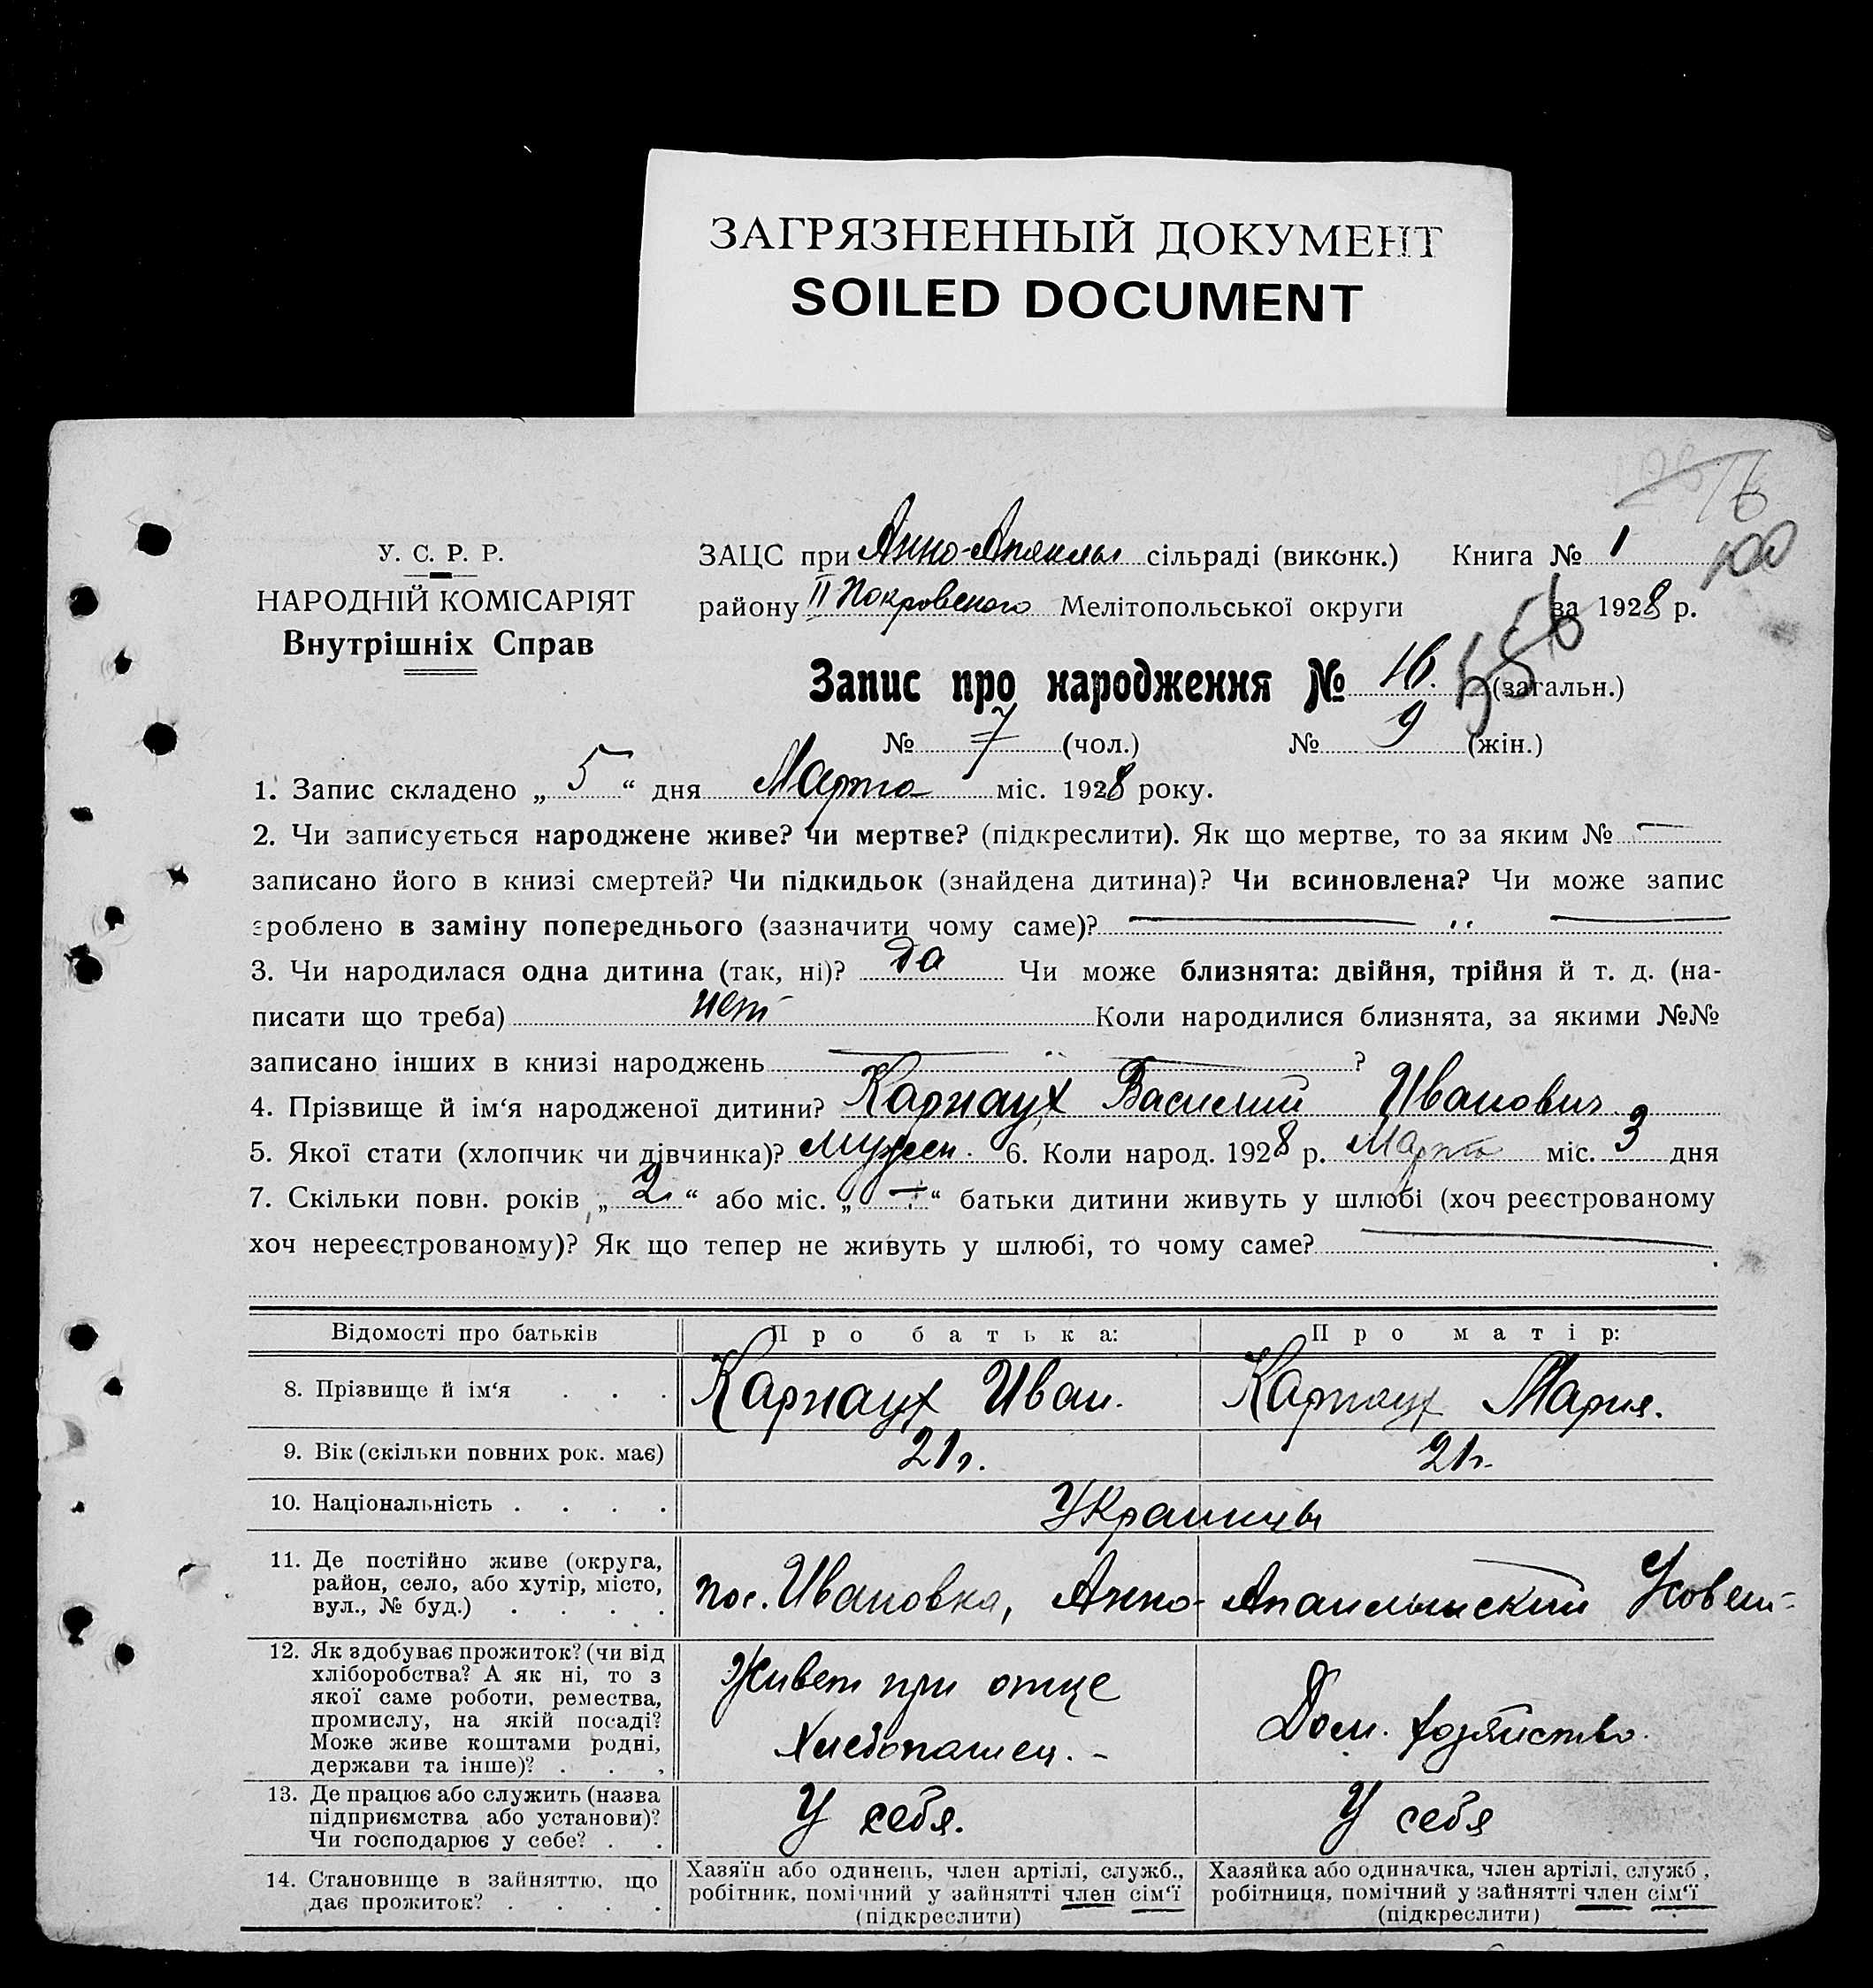 ЗАГРЯЗНЕННЫЙ ДОКУМЕНТ
SOILED DOCUMENT
16
100
У. С. Р. Р.
НАРОДНІЙ КОМІСАРІЯТ
Внутрішніх Справ
ЗАЦС при Анно- сільраді (виконк.) Книга № 1
району II Покровского Мелітопольської округи за 1928 р.
556
Запис про народження № 16. (загальн.)
№ 7 (чол.) № 9 (жін.)
1. Запис складено „ 5 “ дня Марта міс. 1928 року.
2. Чи записується народжене живе? чи мертве? (підкреслити). Як що мертве, то за яким № —
записано його в книзі смертей? Чи підкидьок (знайдена дитина)? Чи всиновлена? Чи може запис
зроблено в заміну попереднього (зазначити чому саме)? — " —
3. Чи народилася одна дитина (так, ні)? да Чи може близнята: двійня, трійня й т. д. (на-
писати що треба) нет Коли народилися близнята, за якими №№
записано інших в книзі народжень — " — ?
4. Прізвище й ім‘я народженої дитини? Карнаух Василий Иванович
5. Якої стати (хлопчик чи дівчинка)? мужеск. 6. Коли народ. 1928 р. Марта міс. 3 дня
7. Скільки повн. років „ 2 “ або міс. „ — “ батьки дитини живуть у шлюбі (хоч реєстрованому
хоч нереєстрованому)? Як що тепер не живуть у шлюбі, то чому саме? —
Відомості про батьків Про батька: Про матір:
8. Прізвище й ім‘я . . . Карнаух Иван. Карнаух Мария.
9. Вік (скільки повних рок. має) 21 г. 21 г.
10. Національність . . . . Украинцы
11. Де постійно живе (округа,
район, село, або хутір, місто,
вул., № буд.) . . . .
пос. Ивановка, Анно-
12. Як здобуває прожиток? (чи від
хліборобства? А як ні, то з
якої саме роботи, ремества,
промислу, на якій посаді?
Може живе коштами родні,
держави та інше)? . . .
Живет при отце
Хлебопашец. -
Дом. хозяйство.
13. Де працює або служить (назва
підприємства або установи)?
Чи господарює у себе? . .
У себя.
У себя
14. Становище в зайняттю, що
дає прожиток? . . . .
Хазяїн або одинець, член артілі, служб.,
робітник, помічний у зайнятті член сім‘ї
(підкреслити)
Хазяйка або одиначка, член артілі, служб,
робітниця, помічний у зайнятті член сім‘ї
(підкреслити)